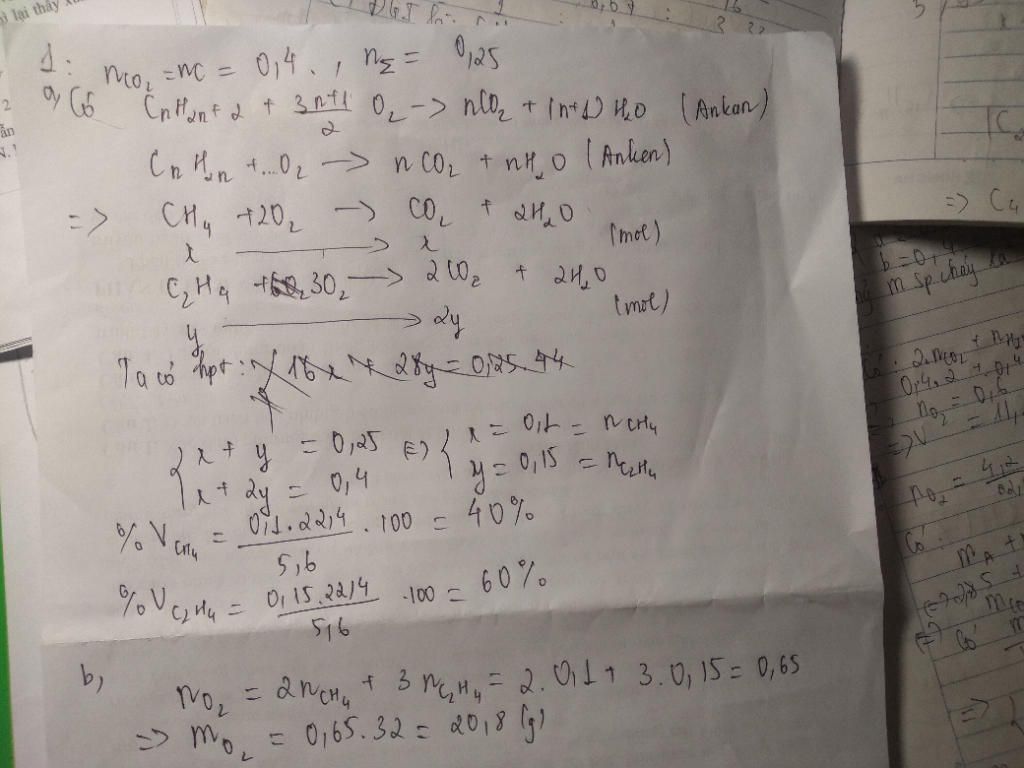 1: nCO2 = nC = 0,4. , nΣ = 0,25
a, Có CnH2n+2 + (3n+1)/2 O2 -> nCO2 + (n+1) H2O (Ankan)
CnH2n + ...O2 -> nCO2 + nH2O (Anken)
=> CH4 + 2O2 -> CO2 + 2H2O
x -> x (mol)
C2H4 + 3O2 -> 2CO2 + 2H2O
y -> 2y (mol)
Ta có hpt: 16x + 28y = 0,25.44
{ x + y = 0,25 (=) { x = 0,1 = nCH4
{ x + 2y = 0,4 { y = 0,15 = nC2H4
%VCH4 = 0,1.22,4 / 5,6 .100 = 40%
%VC2H4 = 0,15.22,4 / 5,6 .100 = 60%
b, nO2 = 2nCH4 + 3nC2H4 = 2.0,1 + 3.0,15 = 0,65
=> mO2 = 0,65.32 = 20,8 (g)
ì lại thấy
=> C4
b = 0,4
m sp cháy
nO2 = 0,6
=> V = 11,
nO2 = 4,2
Có:
mA +
Có
=>